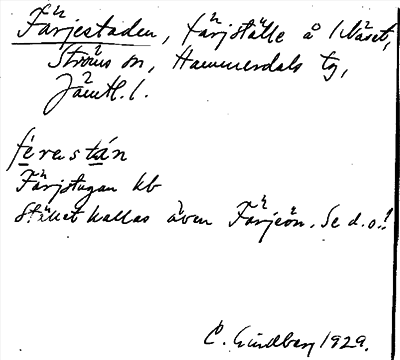 Färjestaden, färjställe å Näset,
Ströms sn, Hammerdals tg,
Jämtl. l.
färastán
Färjstugan kb
Stället kallas även Färjeön. Se d.o.!
C. Lindberg 1929.